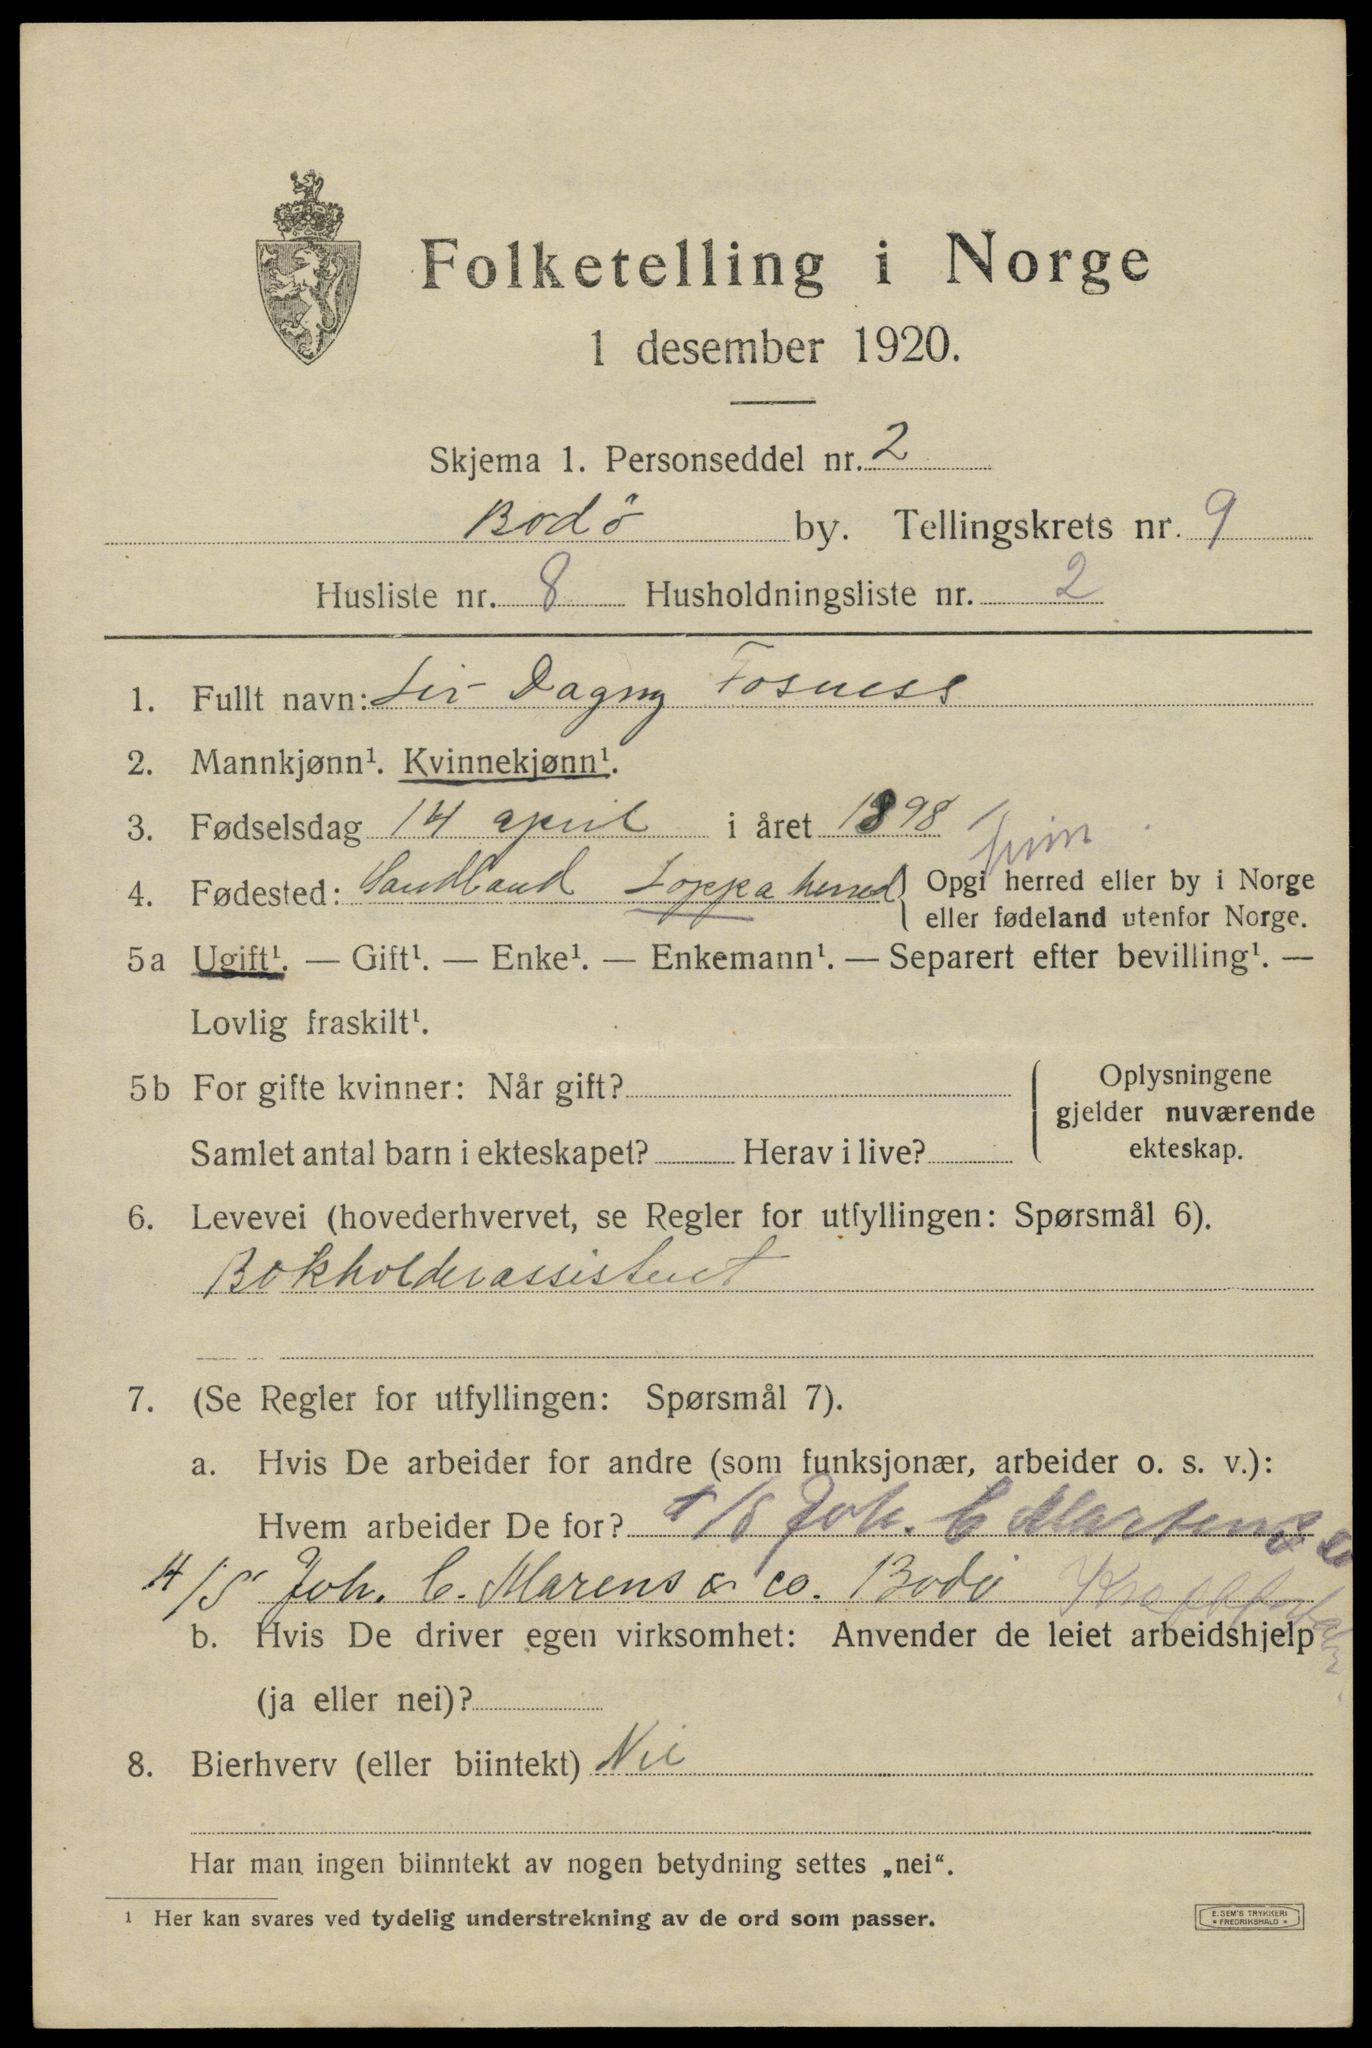 Folketelling i Norge
1 desember 1920.
Skjema 1. Personseddel nr. 2
Bodö by. Tellingskrets nr. 9
Husliste nr. 8 Husholdningsliste nr. 2
1. Fullt navn: Dagny Fosness
2. Mannkjønn¹. Kvinnekjønn¹.
3. Fødselsdag 14 april i året 1898
4. Fødested: Sandland Loppa herred { Opgi herred eller by i Norge
eller fødeland utenfor Norge.
5a Ugift¹. — Gift¹. — Enke¹. — Enkemann¹. — Separert efter bevilling¹. —
Lovlig fraskilt¹.
5b For gifte kvinner: Når gift?
Samlet antal barn i ekteskapet? Herav i live?
Oplysningene
gjelder nuværende
ekteskap.
6. Levevei (hovederhvervet, se Regler for utfyllingen: Spørsmål 6).
Bokholderassistent
7. (Se Regler for utfyllingen: Spørsmål 7).
a. Hvis De arbeider for andre (som funksjonær, arbeider o. s. v.):
Hvem arbeider De for? A/S Joh. C Martens & Co
A/S Joh. C. Marens & co. Bodö
b. Hvis De driver egen virksomhet: Anvender de leiet arbeidshjelp
(ja eller nei)?
8. Bierhverv (eller biintekt) Nei
Har man ingen biinntekt av nogen betydning settes „nei“.
¹ Her kan svares ved tydelig understrekning av de ord som passer.
E. SEM'S TRYKKERI
* FREDRIKSHALD *